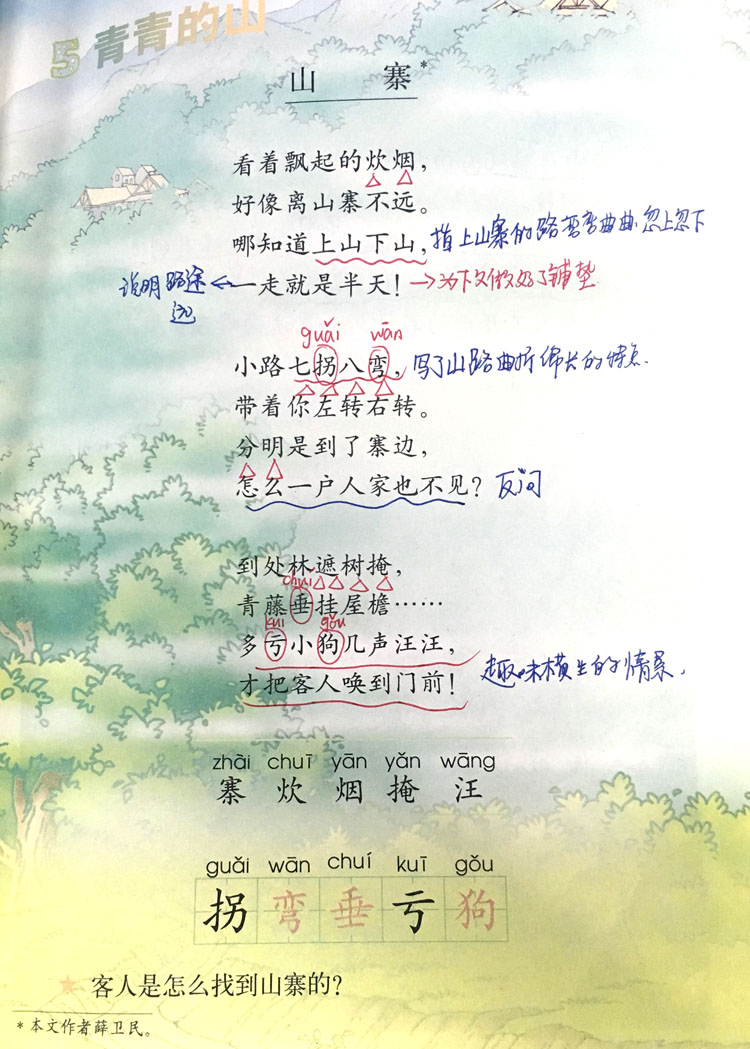 5 青青的山
山寨*
看着飘起的炊烟，
好像离山寨不远。
哪知道上山下山，指上山寨的路弯弯曲曲，忽上忽下
说明路途远 ← 一走就是半天！→为下文做好了铺垫
guǎi wān
小路七拐八弯，写了山路曲折绵长的特点
带着你左转右转。
分明是到了寨边，
怎么一户人家也不见？反问
到处林遮树掩，
chuí
青藤垂挂屋檐……
kuī gǒu
多亏小狗几声汪汪，
才把客人唤到门前！趣味横生的情景
zhài chuī yān yǎn wāng
寨 炊 烟 掩 汪
guǎi wān chuí kuī gǒu
拐 弯 垂 亏 狗
★ 客人是怎么找到山寨的？
*本文作者薛卫民。